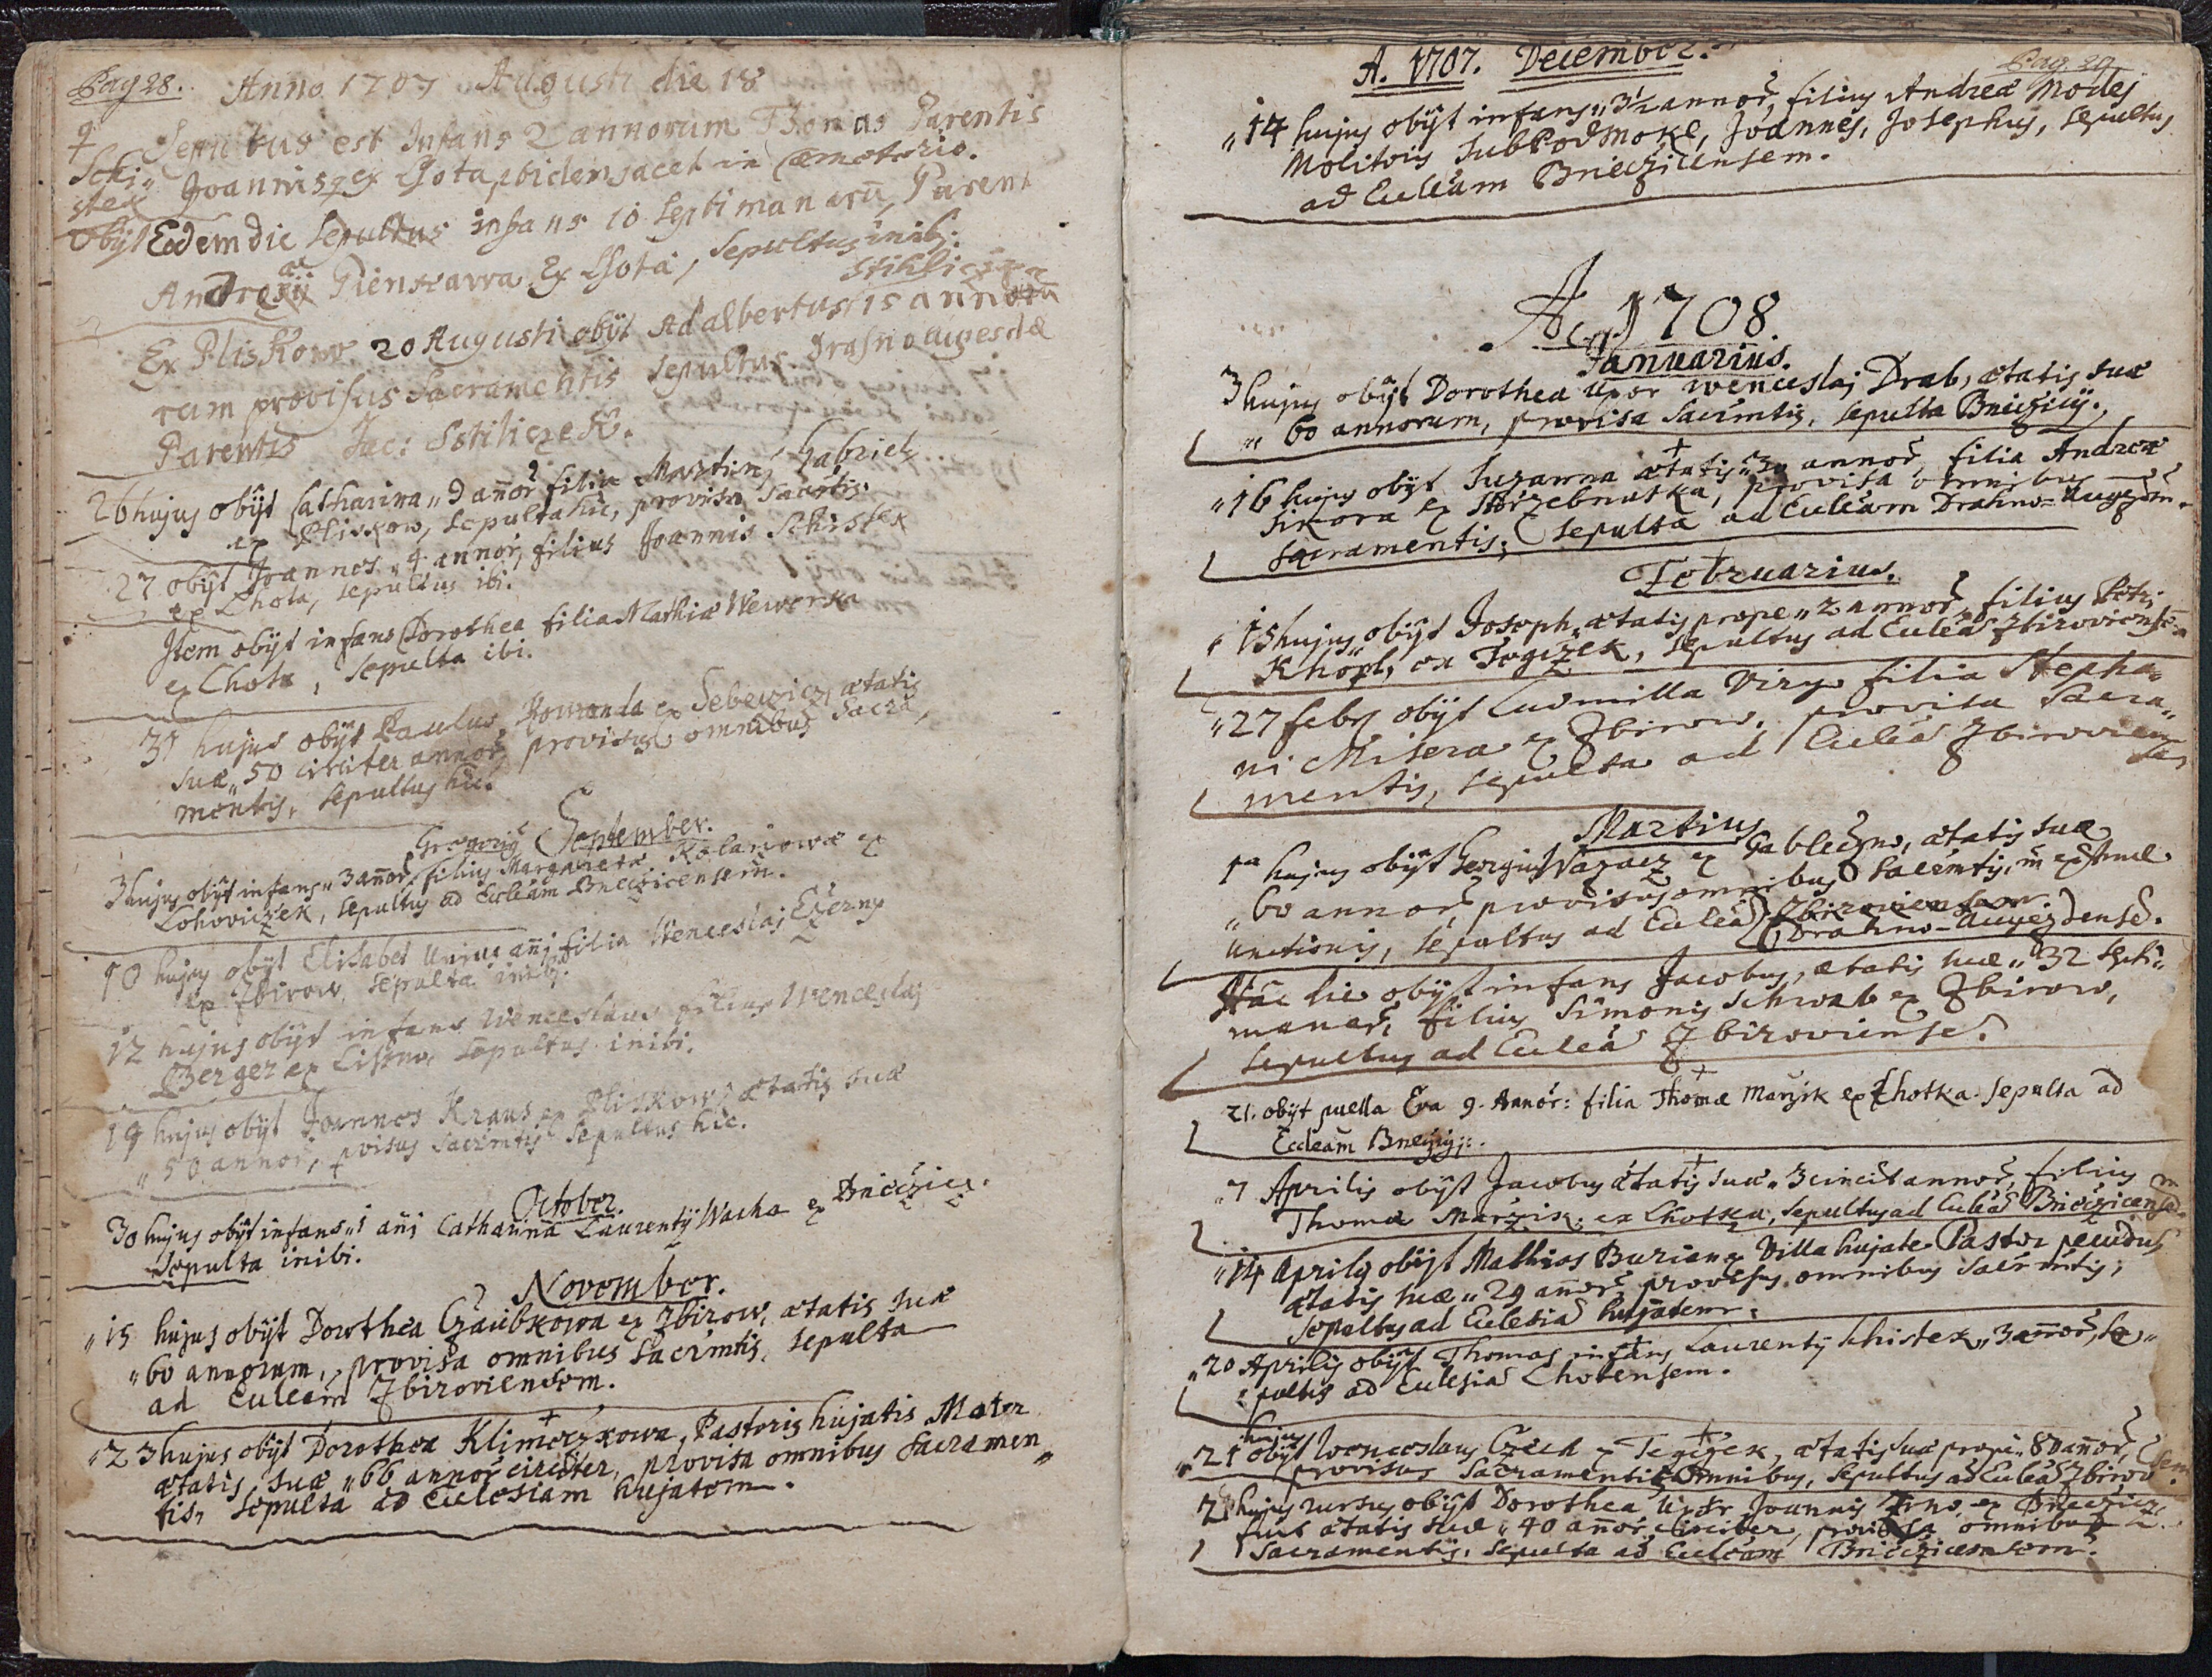 Pag 28. Anno 1707 Augusti die 18
Sepultus est Infans 2 annorum Thomas Parentis
Schi„
stek
Joannis ex Lhota, ibidem jacet in Cæmoterio.
obijt Eodem die Sepultus infans 10 Septimanarũ, Parent
Andreæ ex Lhota, Sepultus inibi.
Ex Pliskow 20 Augusti obijt Adalbertus 15 annorũ
rum provisus Sacramentis Sepultus
Parentis Jac: Stiliczek.
26 hujus obijt Catharina „9 añor filia Martini Gabriel
ex Pliskow, Sepulta hic, provisa Sacrtis.
27 obijt Joannes „4 annor, filius Joannis Schistek
ex Lhota, Sepultus ibi.
Item obijt infans Dorothea filia Mathiæ Wewerka
ex Lhota, Sepulta ibi.
31 hujus obijt Paulus Kowanda ex Sebeczicz, ætatis
suæ „50 circiter annor, provisus omnibus Sacra„
mentis, Sepultus hic.
September.
Gregorij
3 hujus obijt infans „3 añor, filius Margaretæ Kolariowæ ex
Lohoviczek, Sepultus ad Eccleam Bneczicensem.
10 hujus obijt Elisabet Unius añi filia Wenceslaj Czerny
ex Zbirow, Sepulta inibi.
12 hujus obijt infans Wenceslaus filius Wenceslaj
Berger ex Lissna, Sepultus inibi.
19 hujus obijt Joannes Kraus ex Pliskow, ætatis suæ
„50 annor, pvisus Sacrmtis Sepultus hic.
October.
30 hujus obijt infans „1 añi Catharina Laurentij Wacha ex Bneczicz.
Sepulta inibi.
November.
„15 hujus obijt Dorothea Czaubkowa ex Zbirow, ætatis suæ
„60 annorum, provisa omnibus Sacrmtis, Sepulta
ad Eccleam Zbiroviensem.
„23 hujus obijt Dorothea Klimeczkowa, Pastoris hujatis Mater
ætatis suæ „66 annor circiter, provisa omnibus Sacramen„
tis, Sepulta ad Ecclesiam hujatem.
A. 1707. December. Pag. 29.
„14 hujus obijt infans „3½ annor, filius Andreæ Modej
Molitoris sub Podmokl, Joannes, Josephus, Sepultus
ad Eccleam Bneczicensem.
A. 1708.
Januarius.
3 hujus obijt Dorothea Uxor Wenceslaj Drab, ætatis suæ
„60 annorum, provisa Sacrmtis, Sepulta Bneczicij.
„16 hujus obijt Suzanna ætatis „30 annor, filia Andreæ
Sikora ex Storzebnuska, provisa omnibus
Sacramentis; Sepulta ad Eccleam Drahno-Augezden.
Februarius.
„15 hujus obijt Joseph ætatis prope „2 annor, filius Petri
Knopl, ex Tegczek, Sepultus ad Eccleã Zbiroviensẽ
„27 febr obijt Ludmilla Virgo filia Stepha„
ni Misera ex Zbirow, provisa Sacra„
mentis, Sepulta ad Eccleã Zbirovien
sẽ
Martius
1ª hujus obijt Georgius Wazacz ex Gableczno, ætatis suæ
„60 annor, provisus omnibus Sacrmtis, in extrem
Unctionis, Sepultus ad Eccleã Zbiroviensem
Drahno-Augezdensẽ.
Hac die obijt infans Jacobus, ætatis suæ „32 Septi„
manar, filius Simonis Schwab ex Zbirow,
Sepultus ad Eccleã Zbiroviensẽ.
21. obijt puella Eva 9. Annor: filia Thomæ Marzik ex Lhotka. Sepulta ad
Eccleam Bneczij:.
„7 Aprilis obijt Jacobus ætatis suæ „3 circit annor, filius
Thomæ Marzik ex Lhotka, Sepultus ad Eccleã Bneczicensẽ
„14 Aprilis obijt Mathias Burian ex Villa hujate Pastor pecudus
ætatis suæ „29 añor, provisus omnibus Sacrmtis,
Sepultus ad Ecclesiã hujatem.
„20 Aprilis obijt Thomas infans Laurentij Schistek „3 añor, Se„
pultus ad Ecclesiã Lhotensem.
hujus
„21 obijt Wenceslaus Czech ex Tegczek, ætatis suæ prope „80 añor,
provisus Sacramentis Omnibus, Sepultus ad Eccleã Zbirov
sem.
hujus rursus obijt Dorothea Uxor Joannis ex Bneczicz
ætatis suæ „40 añor circiter, provisa omnibus
Sacramentis, Sepulta ad Eccleam Bneczicensem.